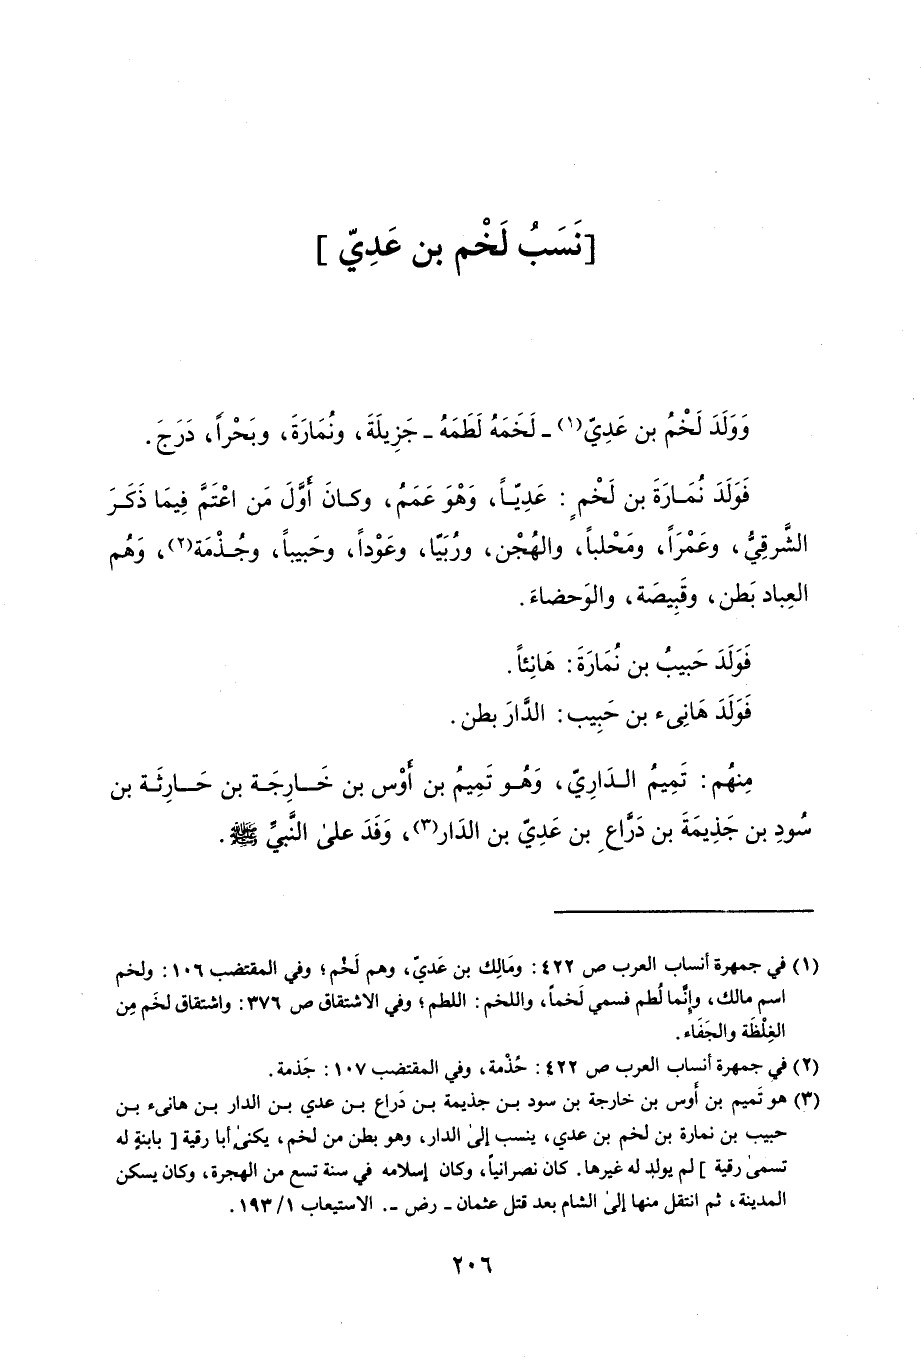 [نَسَبُ لَخْم بن عَدِيّ ]
وَوَلَدَ لَخْمُ بن عَدِيّ(١) ـ لَخَمَهُ لَطَمَهُ ـ جَزِيلَةَ، ونُمَارَةَ، وبَحْراً، دَرَجَ.
فَوَلَدَ نُمَارَةَ بن لَخْمٍ : عَدِيّاً، وَهْوَ عَمَمُ، وكانَ أَوَّلَ مَن اعْتَمَّ فِيمَا ذَكَرَ
الشَّرقِيُّ، وعَمْرَاً، ومَحْلباً، والهُجْن، ورُبَيّا، وعَوْداً، وحَبيباً، وجُذْمَة(٢)، وَهُم
العِباد بَطن، وقَبِيصَة، والوَحضاءَ.
فَوَلَدَ حَبيبُ بن نُمَارَةَ: هَانِئاً.
فَوَلَدَ هَانِىء بن حَبِيب: الدَّارَ بطن.
مِنهُم: تَمِيمُ الدَارِيّ، وَهُو تَمِيمُ بن أَوْس بن خَارِجَة بن حَارِثَة بن
سُودِ بن جَذِيمَةَ بن دَرَّاعِ بن عَدِيّ بن الدَار(٣)، وَفَدَ علىٰ النَّبيِّ ﷺ.
(١) في جمهرة أنساب العرب ص ٤٢٢: ومَالِك بن عَديّ، وهم لَخْم؛ وفي المقتضب ١٠٦: ولخم
اسم مالك، وإِنَّما لُطم فسمي لَخماً، واللخم: اللطم؛ وفي الاشتقاق ص ٣٧٦: واشتقاق لخَم مِن
الغِلْظَة والجَفَاء.
(٢) في جمهرة أنساب العرب ص ٤٢٢: حُذْمة، وفي المقتضب ١٠٧: جَذمة.
(٣) هو تَميم بن أَوس بن خارجة بن سود بن جذيمة بن دَراع بن عدي بن الدار بن هانىء بن
حبيب بن نمارة بن لخم بن عدي، ينسب إلىٰ الدار، وهو بطن من لخم، يكنىٰ أبا رقية [ بابنةٍ له
تسمىٰ رقية ] لم يولد له غيرها. كان نصرانياً، وكان إسلامه في سنة تسع من الهجرة، وكان يسكن
المدينة، ثم انتقل منها إلىٰ الشام بعد قتل عثمان ـ رض ـ. الاستيعاب ١/ ١٩٣.
٢٠٦